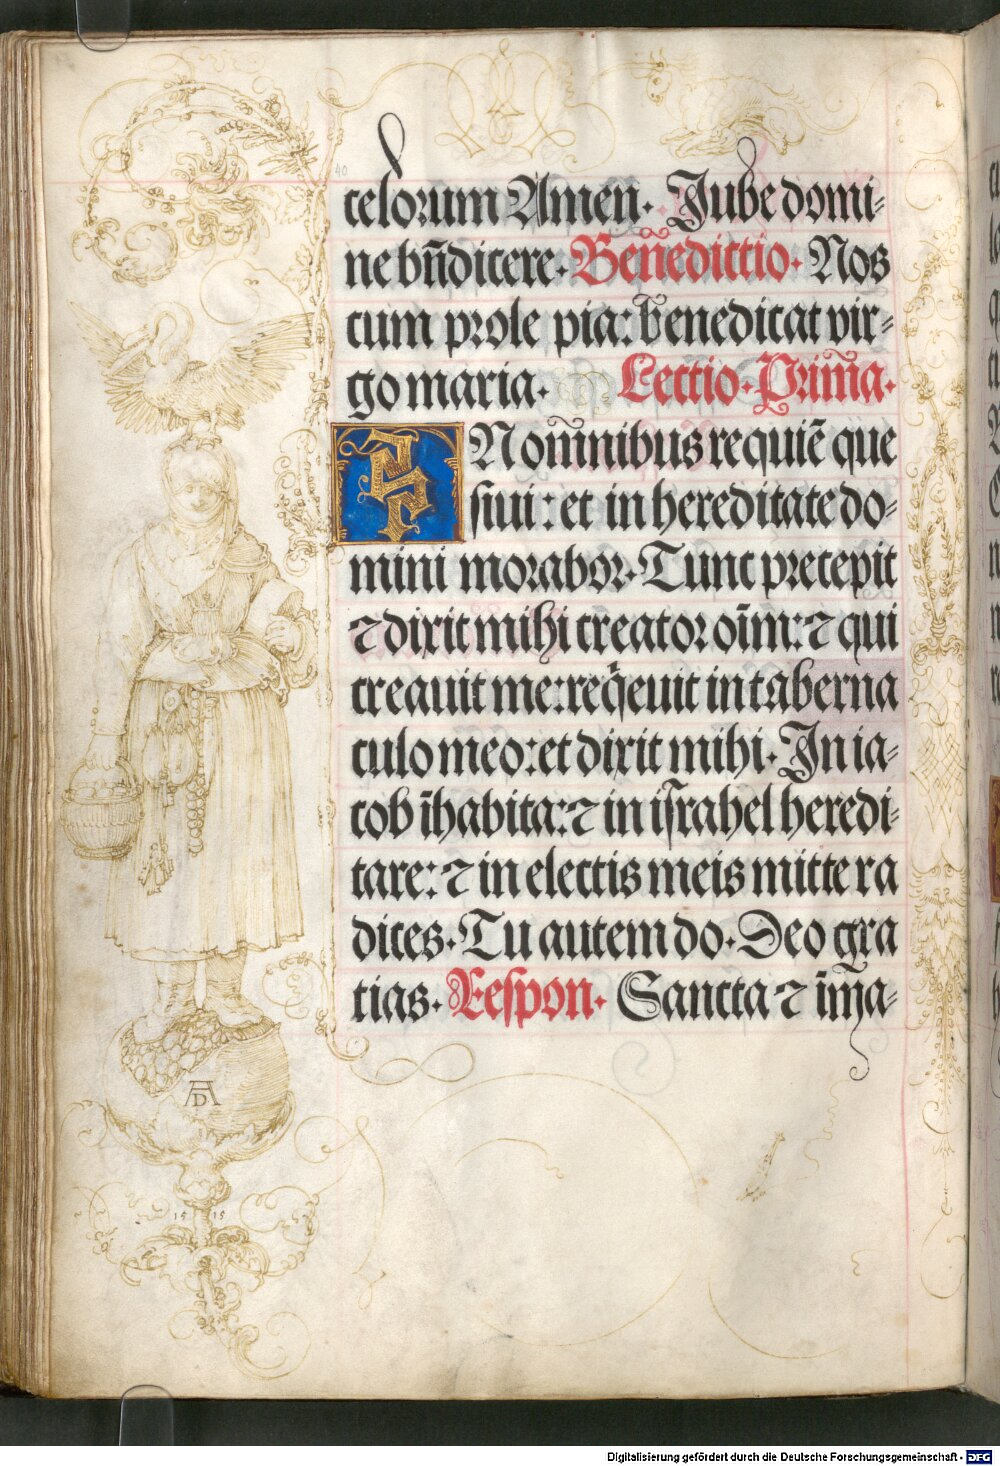 40
celorum Amen. Jube domi-
ne bn̄dicere. Ben̄edictio. Nos
cum prole pia: benedicat vir-
go maria. Lectio. Prim̄a.
IN om̄nibus requiē que
siui: et in hereditate do-
mini morabor. Tunc precepit
⁊ dixit mihi creator oīm: ⁊ qui
creauit me: req̄euit in taberna
culo meo: et dixit mihi. In ia-
cob īhabita: ⁊ in israhel heredi-
tare: ⁊ in electis meis mitte ra
dices. Tu autem do. Deo gra
tias. Respon. Sancta ⁊ īma-
AD
1515
Digitalisierung gefördert durch die Deutsche Forschungsgemeinschaft - DFG